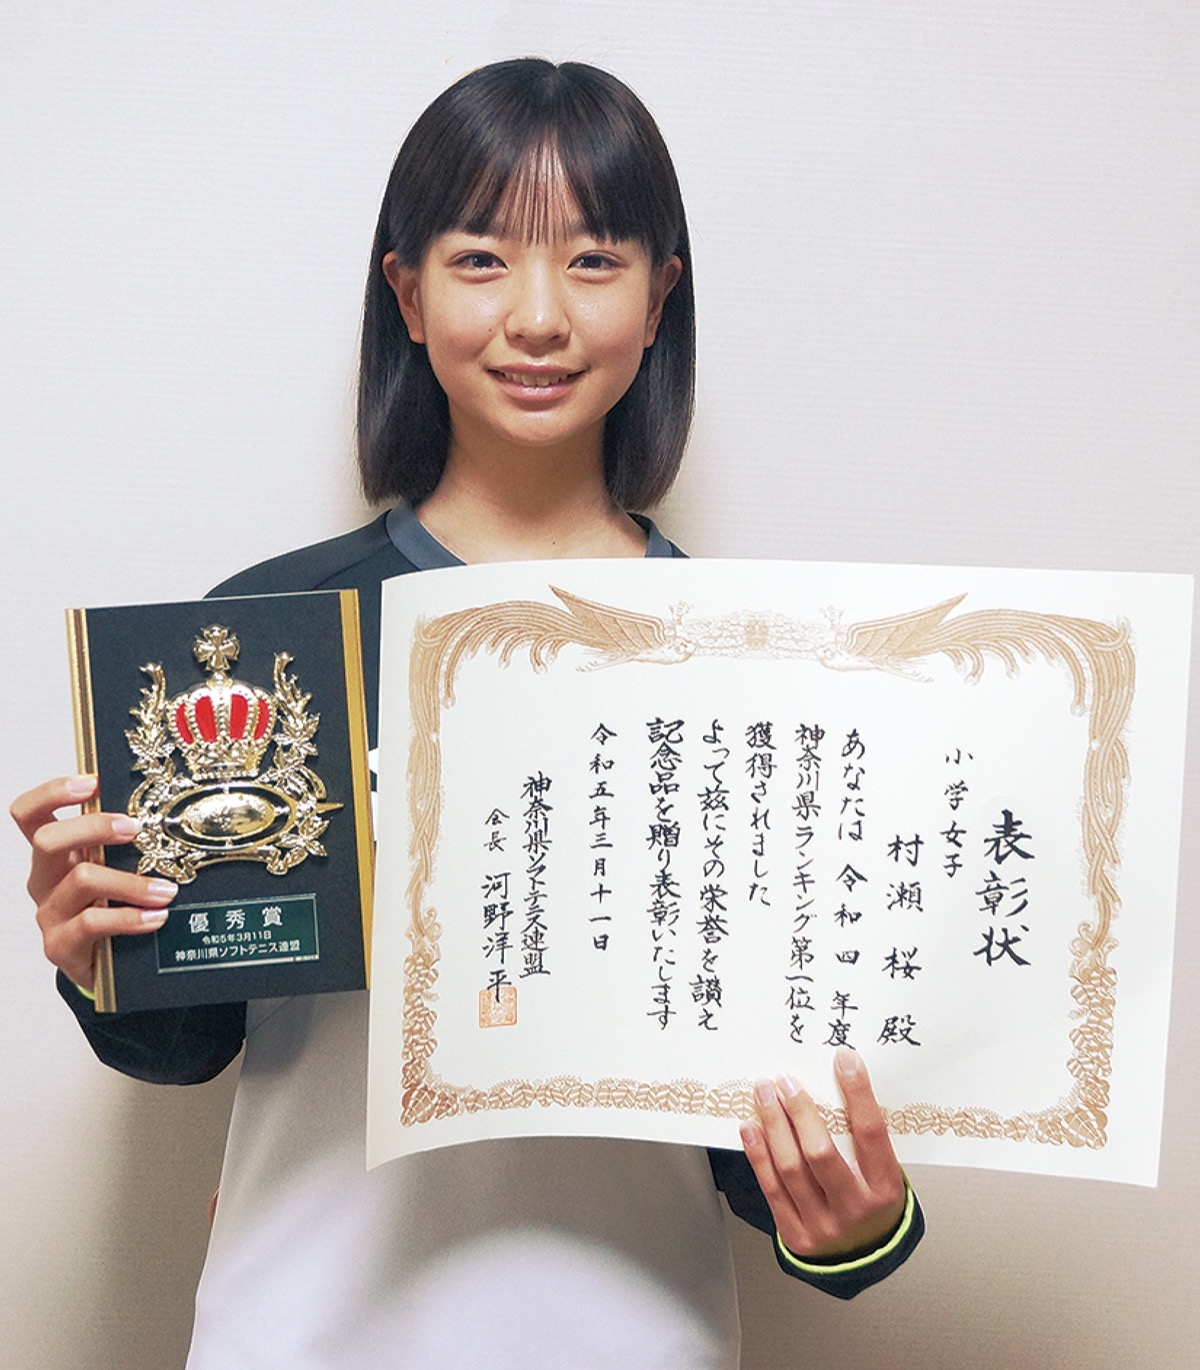 表彰状
小学女子
村瀬 桜 殿
あなたは 令和四年度
神奈川県ランキング第一位を
獲得されました
よって茲にその栄誉を讃え
記念品を贈り表彰いたします
令和五年三月十一日
神奈川県ソフトテニス連盟
会長 河野洋平
優秀賞
令和5年3月11日
神奈川県ソフトテニス連盟